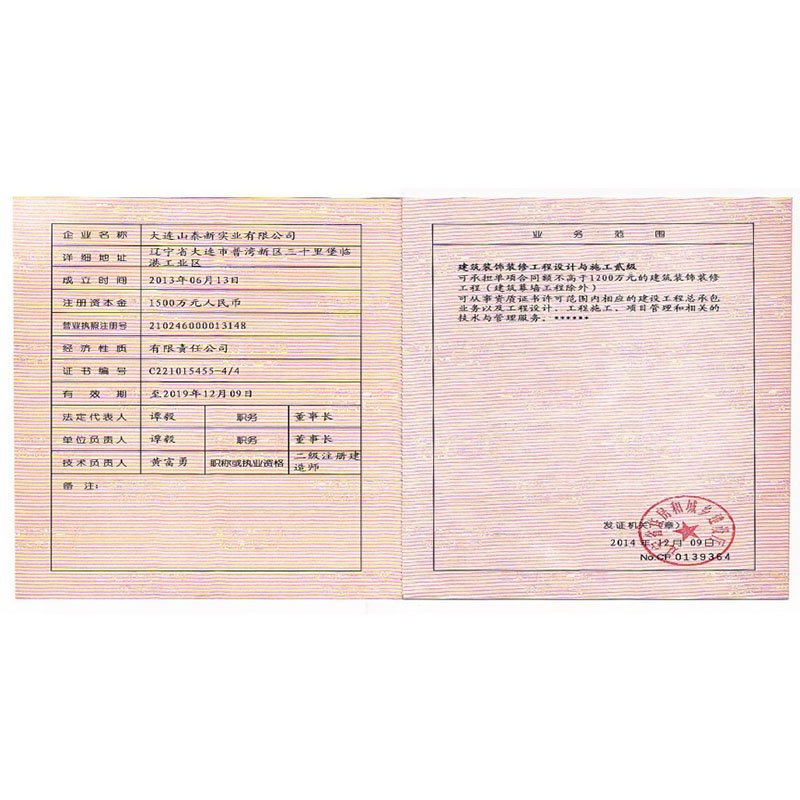 企业名称 大连山泰新实业有限公司
详细地址 辽宁省大连市普湾新区三十里堡临
港工业区
成立时间 2013年06月13日
注册资本金 1500万元人民币
营业执照注册号 210246000013148
经济性质 有限责任公司
证书编号 C221015455-4/4
有效期 至2019年12月09日
法定代表人 谭毅 职务 董事长
单位负责人 谭毅 职务 董事长
技术负责人 黄富勇 职称或执业资格 二级注册建
造师
备注:
业务范围
建筑装饰装修工程设计与施工贰级
可承担单项合同额不高于1200万元的建筑装饰装修
工程(建筑幕墙工程除外)
可从事资质证书许可范围内相应的建设工程总承包
业务以及工程设计、工程施工、项目管理和相关的
技术与管理服务。******
发证机关(章)
2014年12月09日
No.CF 0139364
辽宁省住房和城乡建设厅